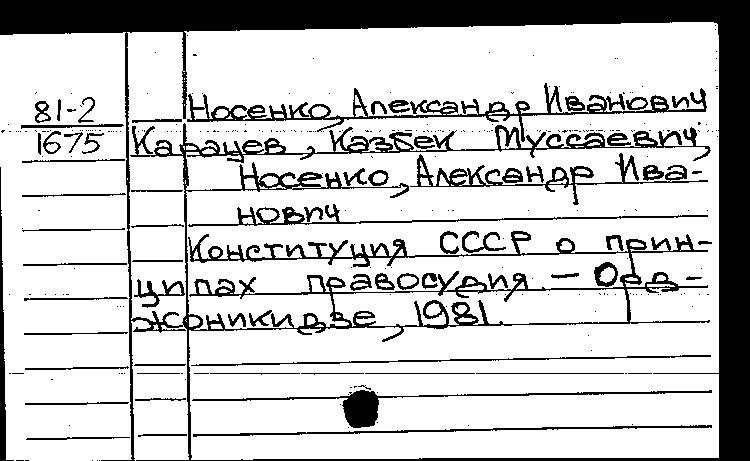 81-2
1675
Носенко, Александр Иванович
Карацев, Казбек Муссаевич,
Носенко, Александр Ива-
нович
Конституция СССР о прин-
ципах правосудия - Орд-
жоникидзе, 1981.